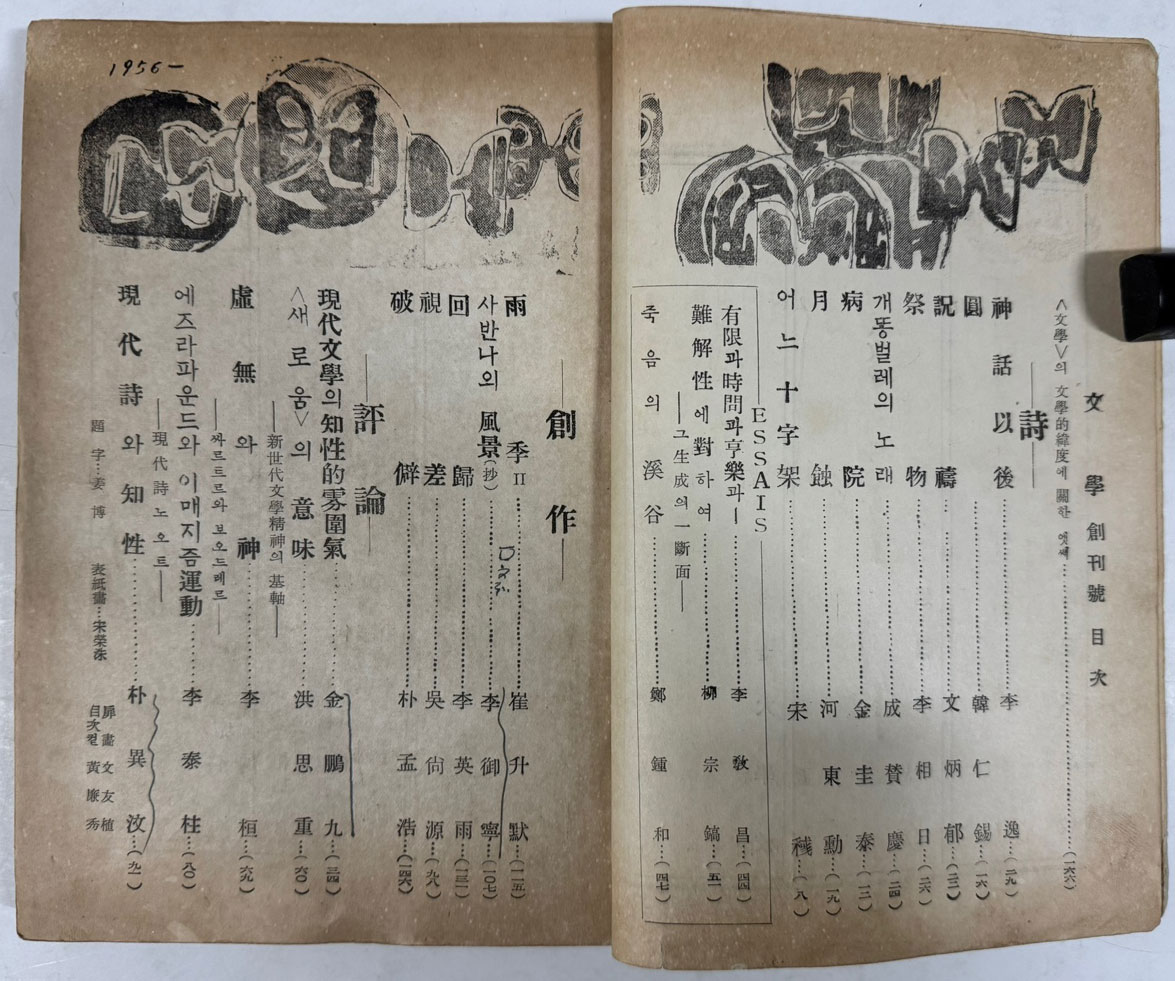 文學 創刊號 目次
<文學>의 文學的緯度에 關한 엣쎄…(一六六)
—詩—
神話以後…李逸…(二九)
圓…韓仁錫…(一六)
祝禱…文炳郁…(二二)
祭物…李相日…(二六)
개똥벌레의 노래…成贊慶…(二四)
病院…金圭泰…(一二)
月蝕…河東勳…(一九)
어느 十字架…宋稶…(八)
—ESSAIS—
有限과 時間과 享樂과—…李敎昌…(四四)
難解性에 對하여…柳宗鎬…(五一)
—그 生成의 一斷面—
죽음의 溪谷…鄭鍾和…(四七)
—創作—
雨季 II…崔升默…(一一五)
사반나의 風景(抄)…李御寧…(一〇七)
回歸…李英雨…(一三一)
視差…吳尙源…(九八)
破僻…朴孟浩…(一四六)
—評論—
現代文學의 知性的 雰圍氣…金鵬九…(三四)
<새로움>의 意味…洪思重…(六〇)
—新世代文學精神의 基軸—
虛無와 神…李桓…(六九)
—싸르트르와 보오드레르—
에즈라 파운드와 이매지즘 運動…李泰柱…(八〇)
現代詩와 知性…朴異汶…(九一)
—現代詩 노오트—
題字…姜博
表紙畵…宋榮洙
扉畵 文友植
目次컽 黃廉秀
1956—